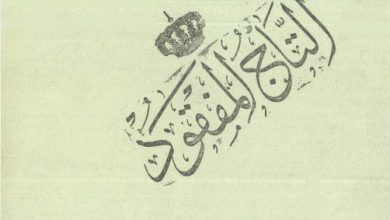 التاج المفقود